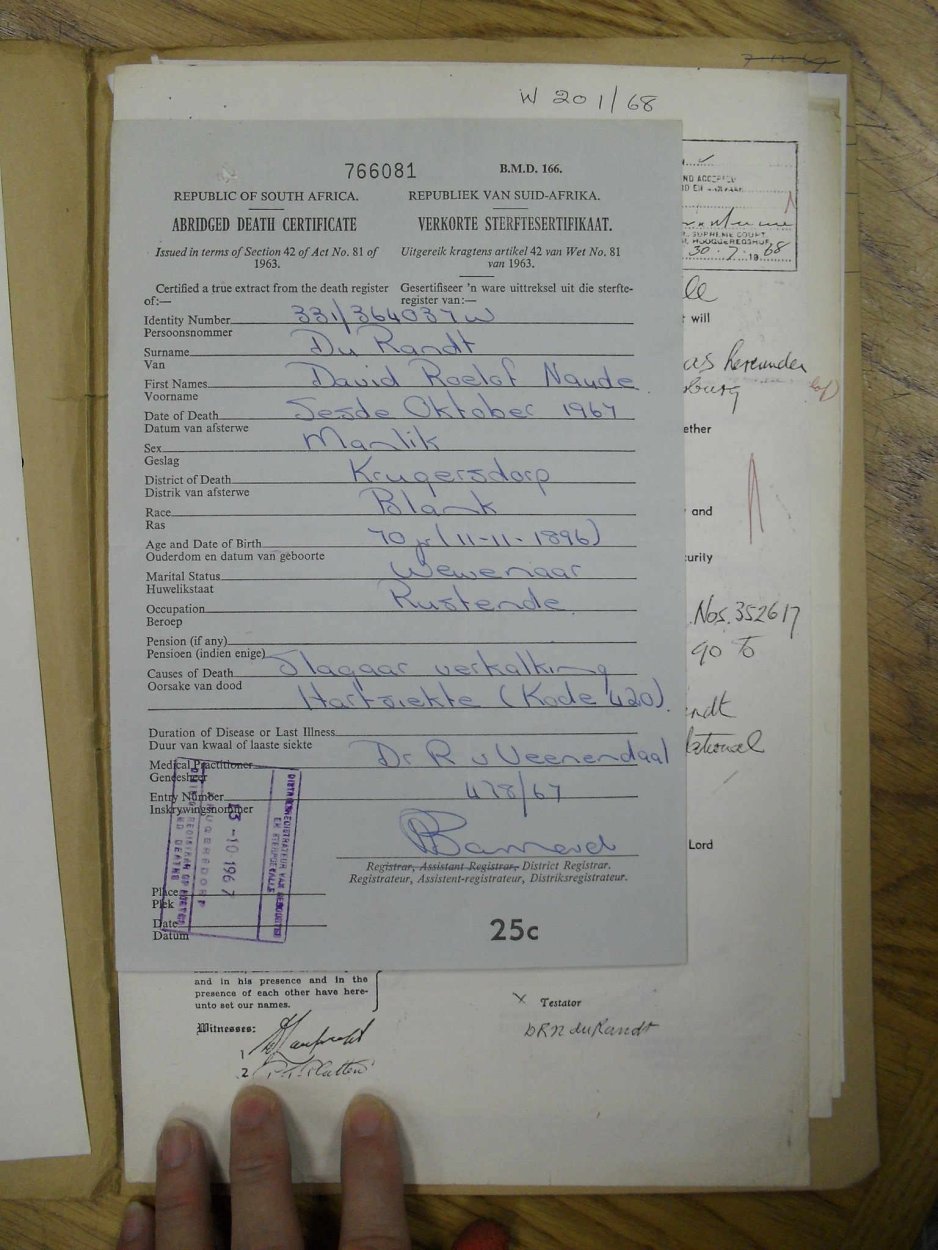 W 201/68
766081
B.M.D. 166.
REPUBLIC OF SOUTH AFRICA.
REPUBLIEK VAN SUID-AFRIKA.
ABRIDGED DEATH CERTIFICATE
VERKORTE STERFTESERTIFIKAAT.
Issued in terms of Section 42 of Act No. 81 of
1963.
Uitgereik kragtens artikel 42 van Wet No. 81
van 1963.
Certified a true extract from the death register
of:—
Gesertifiseer 'n ware uittreksel uit die sterfte-
register van:—
Identity Number 331/364037W
Persoonsnommer
Surname Du Randt
Van
First Names David Roelof Naude
Voorname
Date of Death Sesde Oktober 1967
Datum van afsterwe
Sex Manlik
Geslag
District of Death Krugersdorp
Distrik van afsterwe
Race Blank
Ras
Age and Date of Birth 70 jr (11-11-1896)
Ouderdom en datum van geboorte
Marital Status Wewenaar
Huwelikstaat
Occupation Rustende
Beroep
Pension (if any)
Pensioen (indien enige)
Causes of Death Slagaar verkalking
Oorsake van dood
Hartsiekte (Kode 420)
Duration of Disease or Last Illness
Duur van kwaal of laaste siekte
Medical Practitioner Dr R v Veenendaal
Geneesheer
Entry Number 478/67
Inskrywingsnommer
Registrar, Assistant Registrar, District Registrar.
Registrateur, Assistent-registrateur, Distriksregistrateur.
Place
Plek
Date
Datum
25c
DISTRIKSREGISTRATEUR VAN GEBOORTES
EN STERFGEVALLE
-10 1967
KRUGERSDORP
SUPREME COURT
HOOGGEREGSHOF
30 7 1968
will
as hereunder
burg
ether
and
curity
Nos. 352617
90 to
ndt
national
Lord
and in his presence and in the
presence of each other have here-
unto set our names.
Witnesses:
1
2
X Testator
DRN du Randt